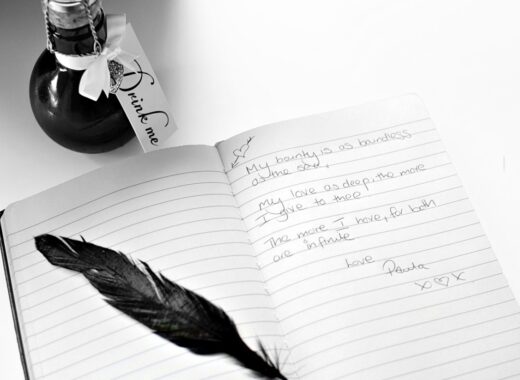 Drink me
My bounty is as boundless
as the sea,
My love as deep, the more
I give to thee
The more I have, for both
are infinite
love
xx